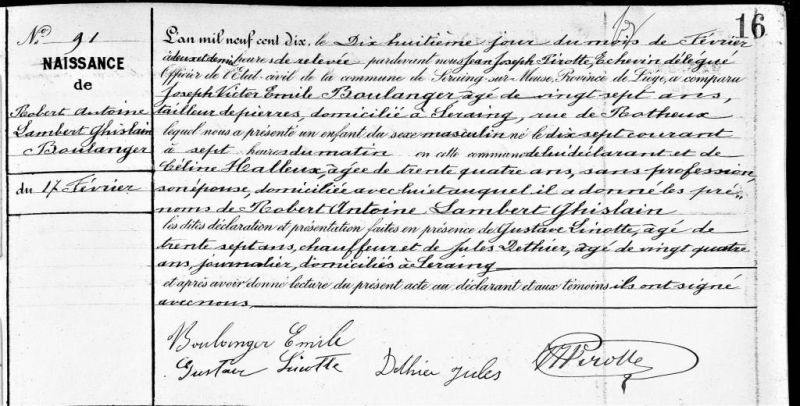 16
N° 91
NAISSANCE
de
Robert Antoine
Lambert Ghislain
Boulanger
du 17 Février
L'an mil neuf cent dix, le Dix huitième jour du mois de Février
à deux et demi heures de relevée pardevant nous Jean Joseph Pirotte, Echevin délégué
Officier de l'Etat-civil de la commune de Seraing-sur-Meuse, Province de Liége, a comparu
Joseph Victor Emile Boulanger agé de vingt sept ans,
tailleur de pierres, domicilié à Seraing, rue de Rotheux
lequel nous a présenté un enfant du sexe masculin né le dix sept courant
à sept heures du matin en cette commune de lui déclarant et de
Céline Halleux, agée de trente quatre ans, sans profession,
son épouse, domiciliée avec lui et auquel il a donné les pré-
noms de Robert Antoine Lambert Ghislain
les dites déclaration et présentation faites en présence de Gustave Linotte, agé de
trente sept ans, chauffeur et de Jules Dethier, agé de vingt quatre
ans, journalier, domiciliés à Seraing
et après avoir donné lecture du présent acte au déclarant et aux témoins ils ont signé
avec nous
Boulanger Emile
Gustave Linotte Dethier Jules JJPirotte